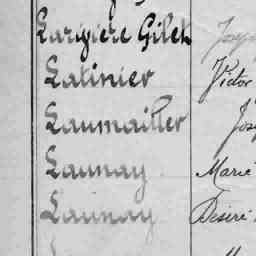 Largiere Gilet Joseph
Latinier Victor
Laumailler Jos
Launay Marie
Launay Désiré